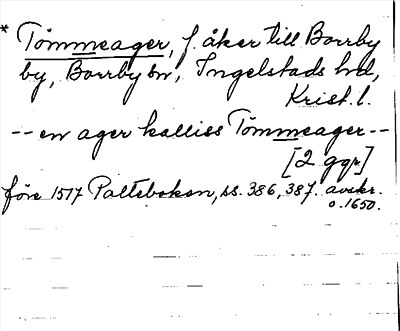 * Tömmeager, f. åker till Borrby
by, Borrby sn, Ingelstads hd,
Krist. l.
-- en ager kalliss Tömmeager --
[2 ggr]
före 1517 Paltebokon, ss. 386, 387. avskr.
o. 1650.